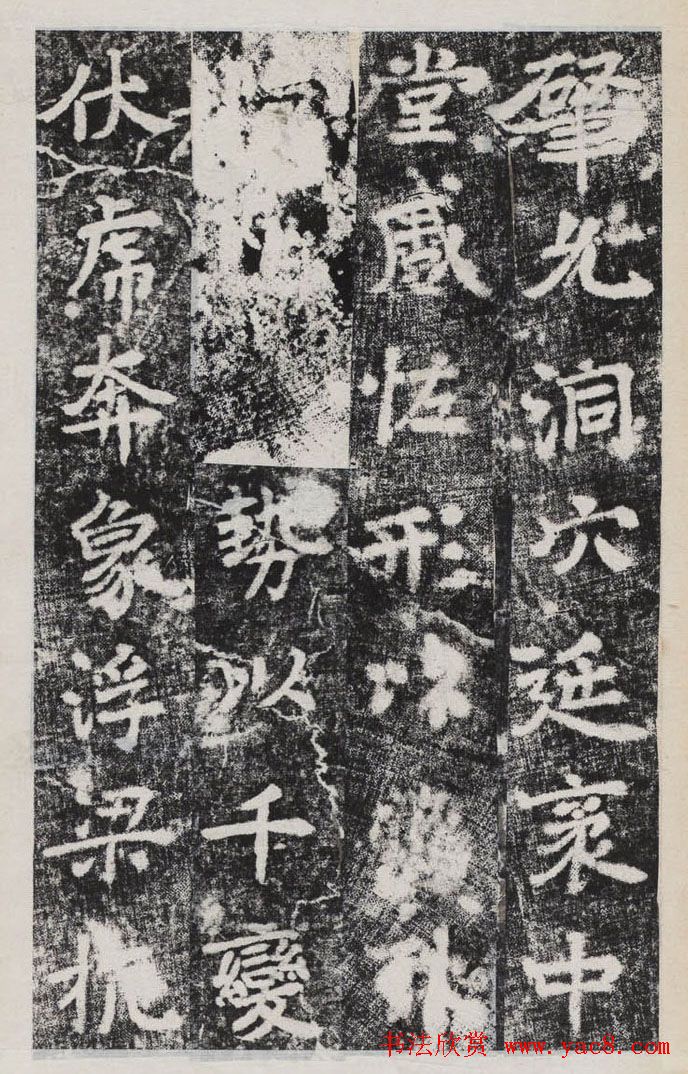 肇允洞穴延袤中
堂恠形外
勢以千變
伏虎奔象浮梁抗
书法欣赏 www.yac8.com